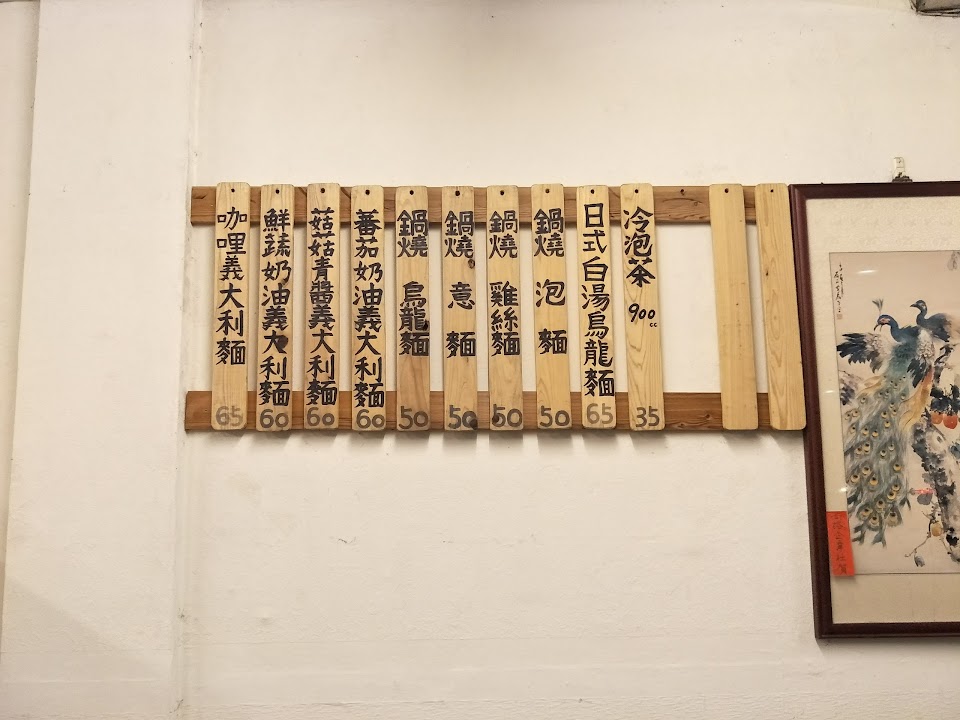 咖哩義大利麵 65
鮮蔬奶油義大利麵 60
菇菇青醬義大利麵 60
蕃茄奶油義大利麵 60
鍋燒烏龍麵 50
鍋燒意麵 50
鍋燒雞絲麵 50
鍋燒泡麵 50
日式白湯烏龍麵 65
冷泡茶 900cc 35